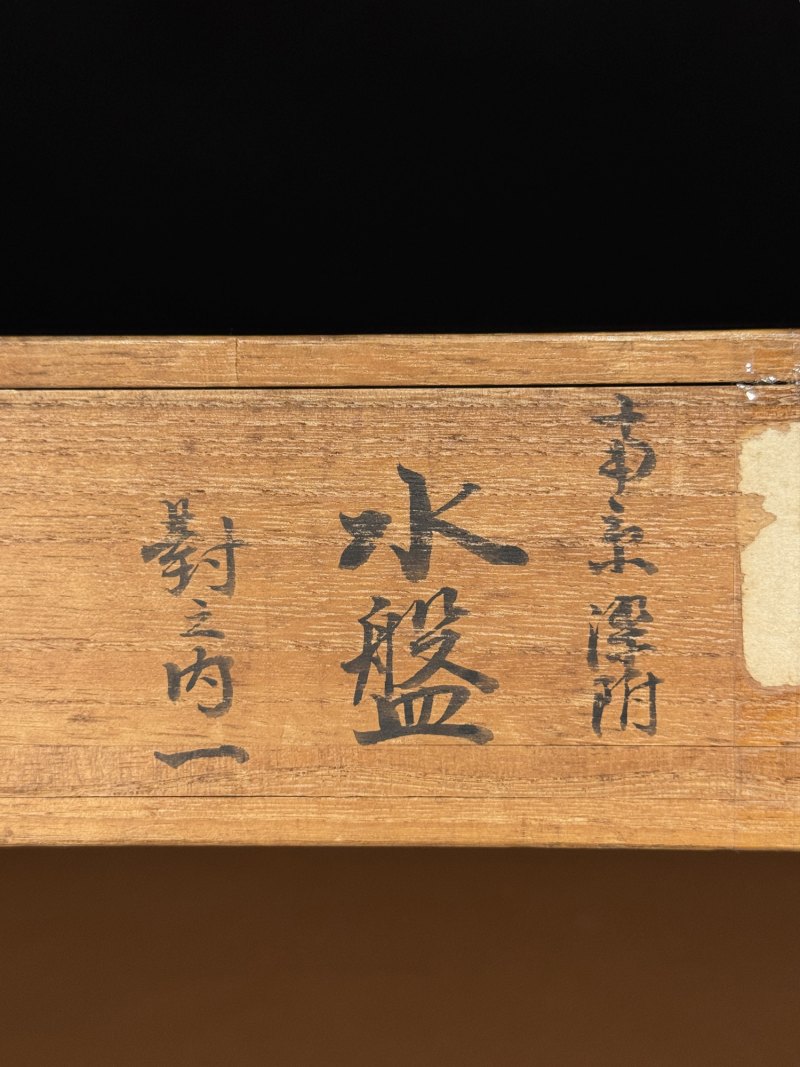 南京染附
水盤
對之内一